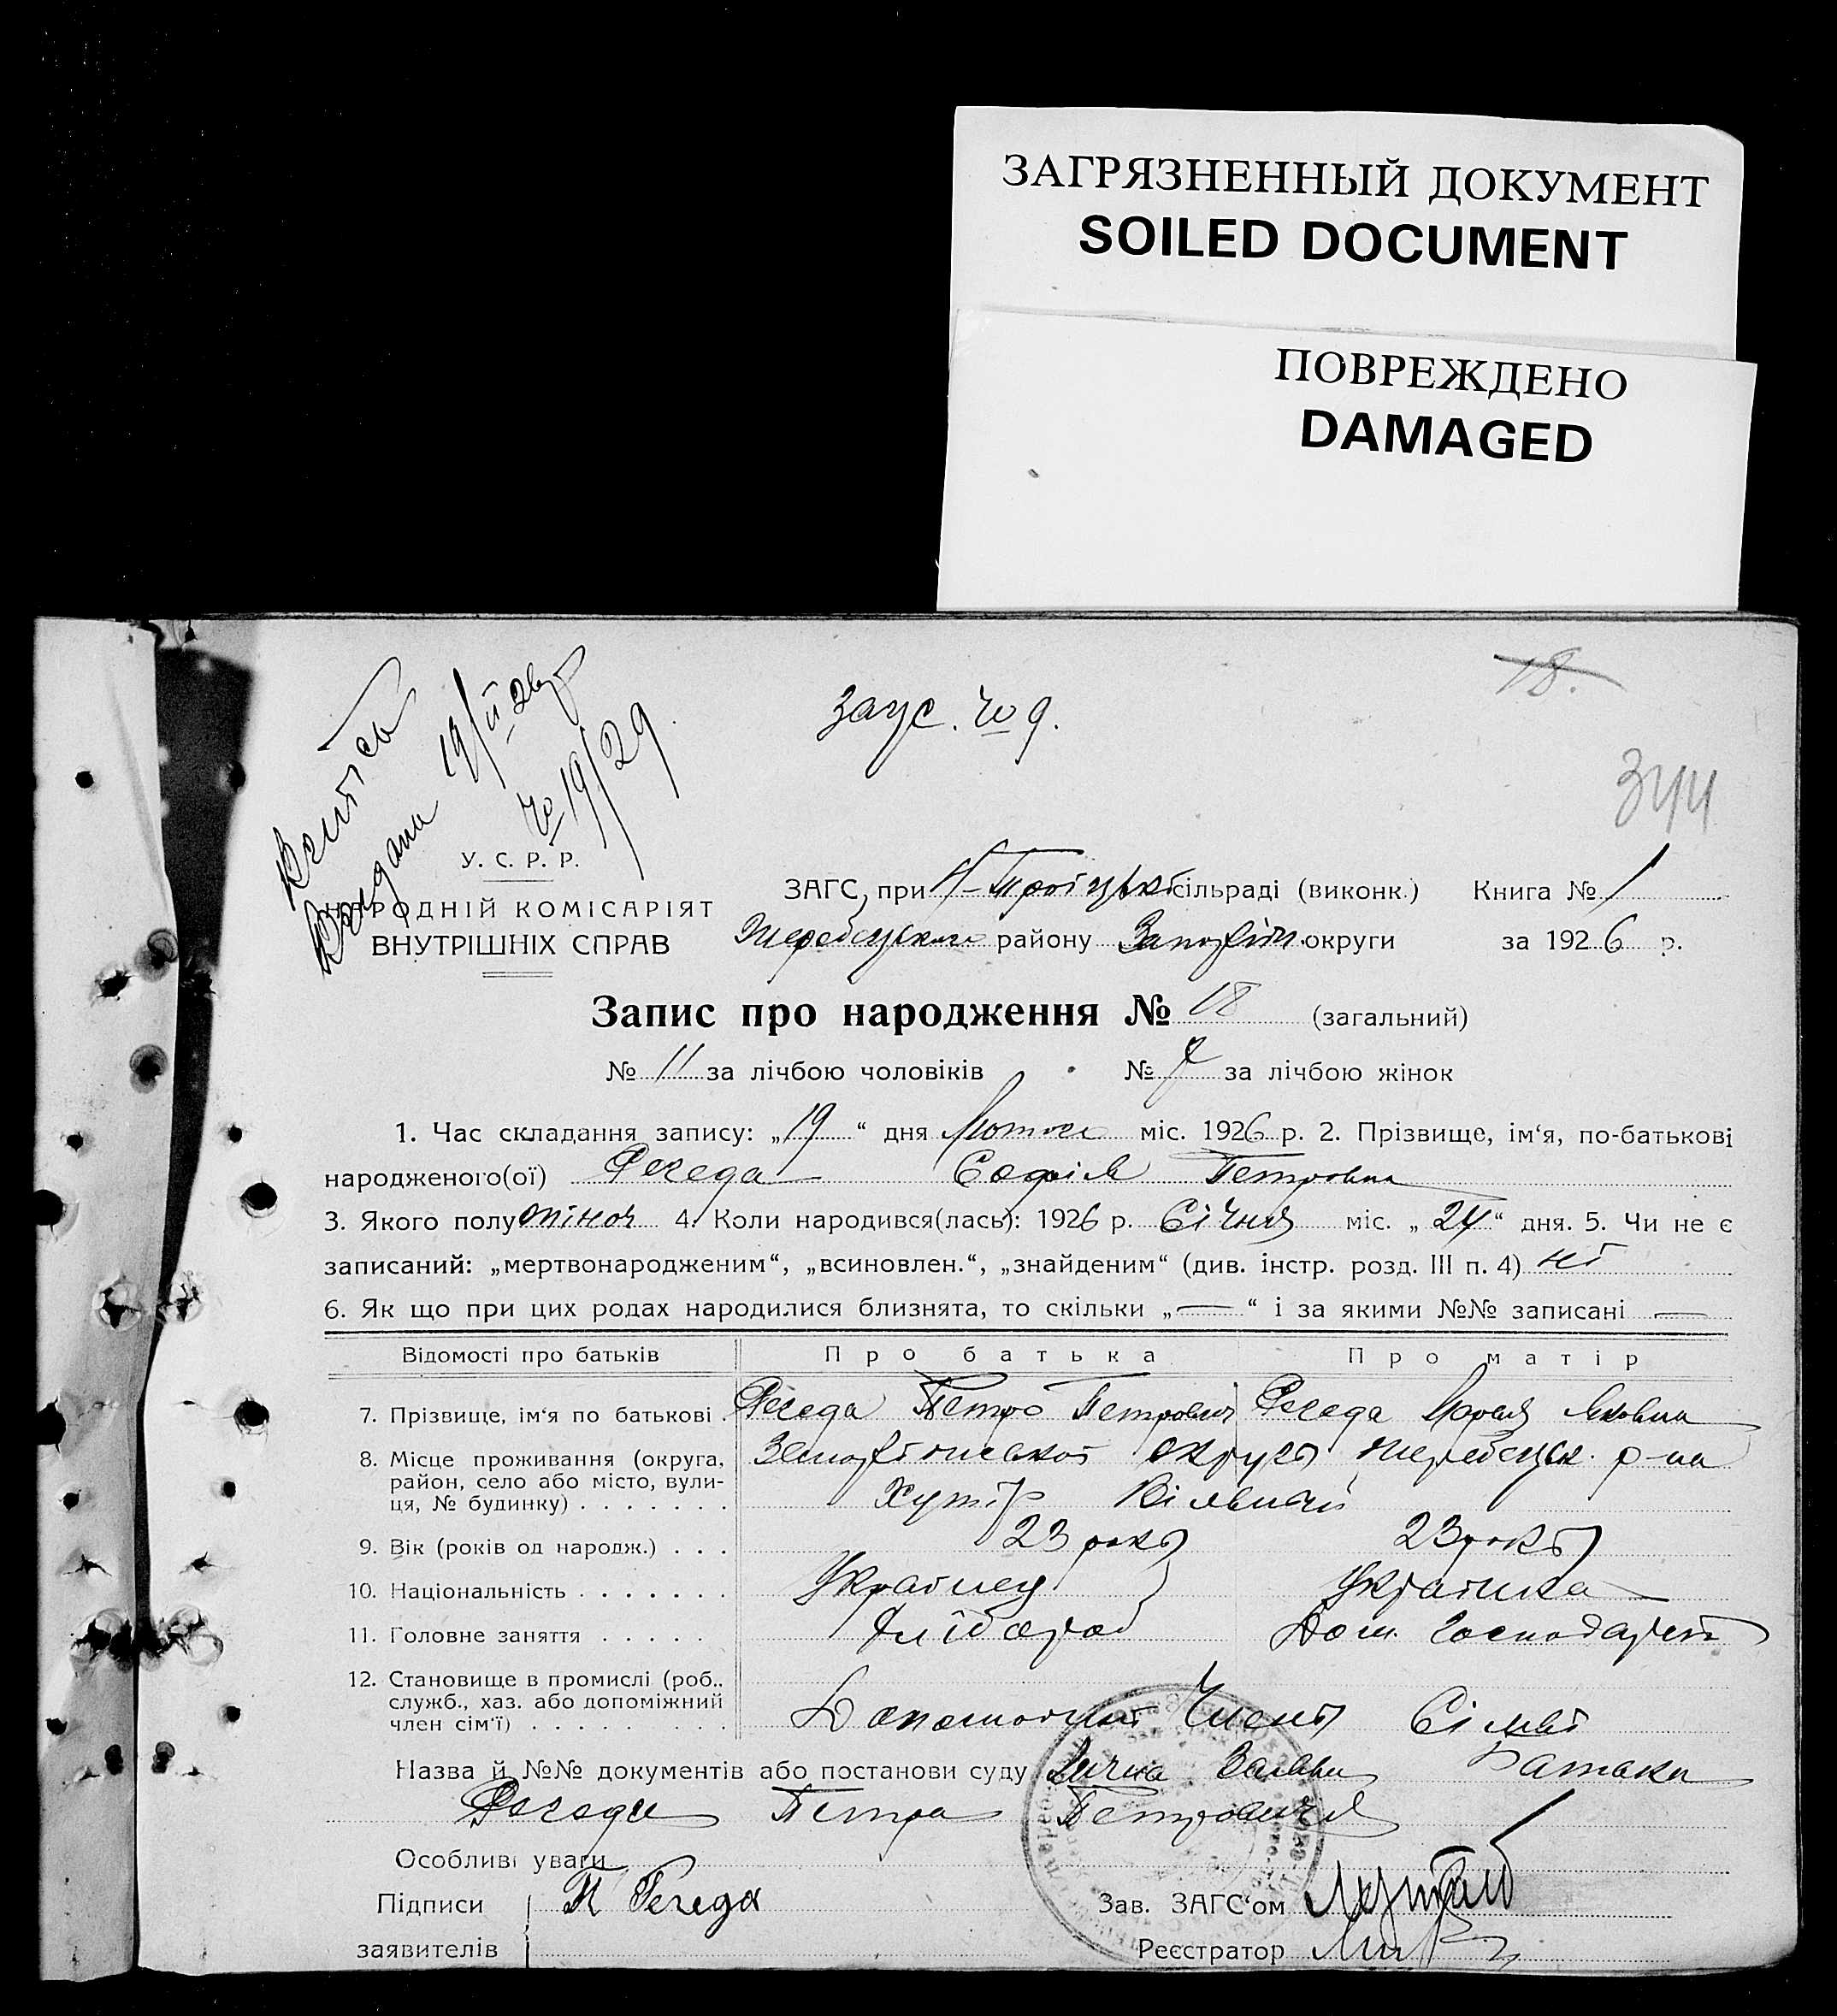 ЗАГРЯЗНЕННЫЙ ДОКУМЕНТ
SOILED DOCUMENT
ПОВРЕЖДЕНО
DAMAGED
18.
№ 9.
№ 19/29
344
У. С. Р. Р.
НАРОДНІЙ КОМІСАРІЯТ
ВНУТРІШНІХ СПРАВ
ЗАГС, при Н-Троіцькій сільраді (виконк.) Книга № 1
Жеребецького району Запоріж. округи за 1926 р.
Запис про народження № 18 (загальний)
№ 11 за лічбою чоловіків № 7 за лічбою жінок
1. Час складання запису: „19“ дня Лютого міс. 1926 р. 2. Прізвище, ім‘я, по-батькові
народженого(ої) Регеда Софія Петровна
3. Якого полу жіноч 4. Коли народився(лась): 1926 р. Січня міс. „24“ дня. 5. Чи не є
записаний: „мертвонародженим“, „всиновлен.“, „знайденим“ (див. інстр. розд. III п. 4) ні
6. Як що при цих родах народилися близнята, то скільки „—“ і за якими №№ записані —
Відомості про батьків Про батька Про матір
7. Прізвище, ім‘я по батькові Регеда Петро Петрович Регеда Марія Яковна
8. Місце проживання (округа, район, село або місто, вулиця, № будинку) Запоріжської округи Жеребецьк. р-на
Хутір Вільний
9. Вік (років од народж.) 23 роки 23 роки
10. Національність Украінец Украінка
11. Головне заняття Хлібороб Дом. Господарств
12. Становище в промислі (роб., служб., хаз. або допоміжний член сім‘ї) Допоможний Член Сімьі
Назва й №№ документів або постанови суду Лична Заява Батька
Регеди Петра Петровича
Особливі уваги
Підписи П Регеда Зав. ЗАГС‘ом
заявителів Реєстратор